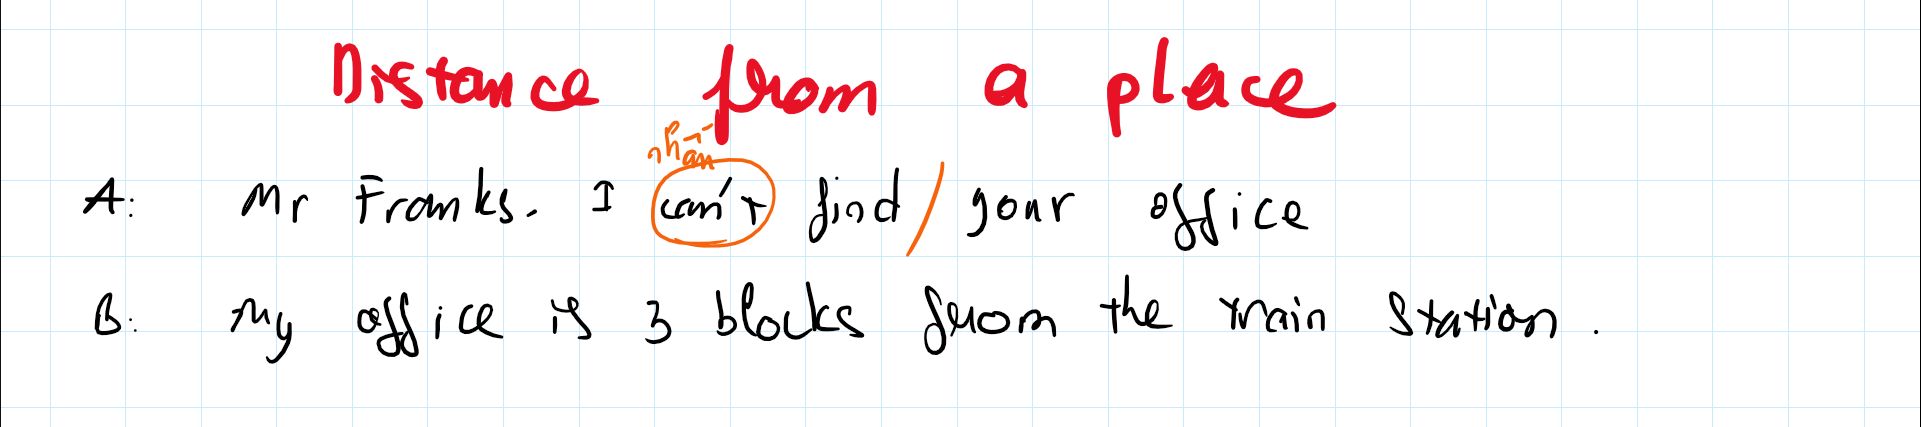 Distance from a place
nhấn
A: Mr Franks. I can't find / your office
B: My office is 3 blocks from the train station.